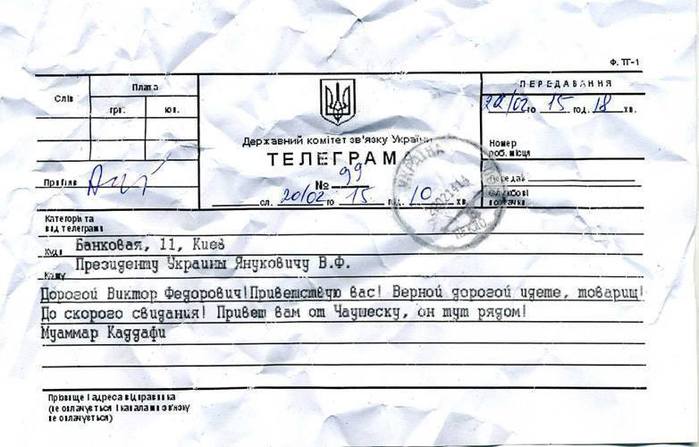 Ф. ТГ-1
Слів
Плата
грн.
коп.
Прийняв
Державний комітет зв'язку України
ТЕЛЕГРАМА
№ 99
сл. 20/02 го 15 год. 10 хв.
ПЕРЕДАВАННЯ
20/02 го 15 год. 18 хв.
Номер
роб. місця
Передав
Службові
позначки
УКРАЇНА
Категорія та
від телеграми
Куди Банковая, 11, Киев
Кому Президенту Украины Януковичу В.Ф.
Дорогой Виктор Федорович!Приветствую вас! Верной дорогой идете, товарищ!
До скорого свидания! Привет вам от Чаушеску, он тут рядом!
Муаммар Каддафи
Прізвище і адреса відправника
(не оплачується і каналами зв'язку
не оплачується)